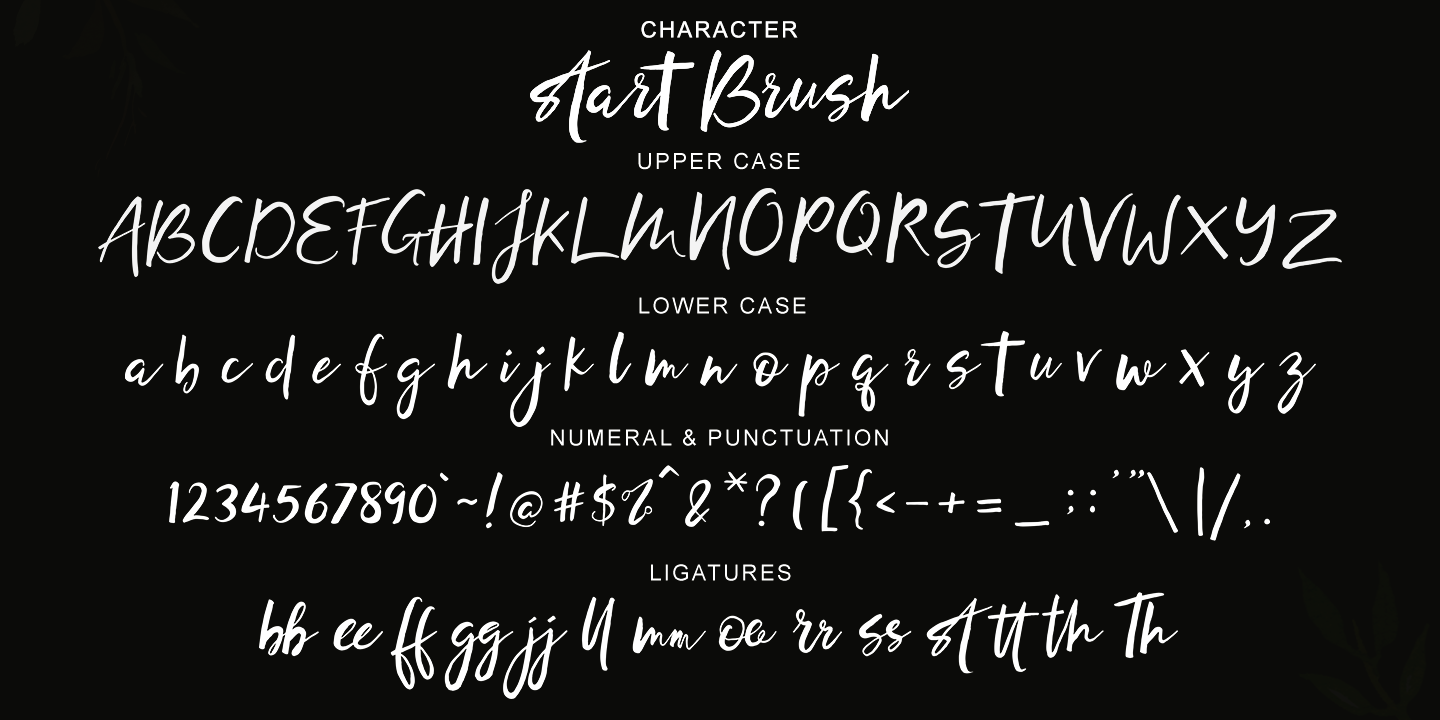 CHARACTER
Start Brush
UPPER CASE
ABCDEFGHIJKLMNOPQRSTUVWXYZ
LOWER CASE
a b c d e f g h i j k l m n o p q r s t u v w x y z
NUMERAL & PUNCTUATION
1234567890`~!@#$%^&*?([{<-+=_;:'"\|/,.
LIGATURES
bb ee ff gg jj ll mm oo rr ss st tt th Th